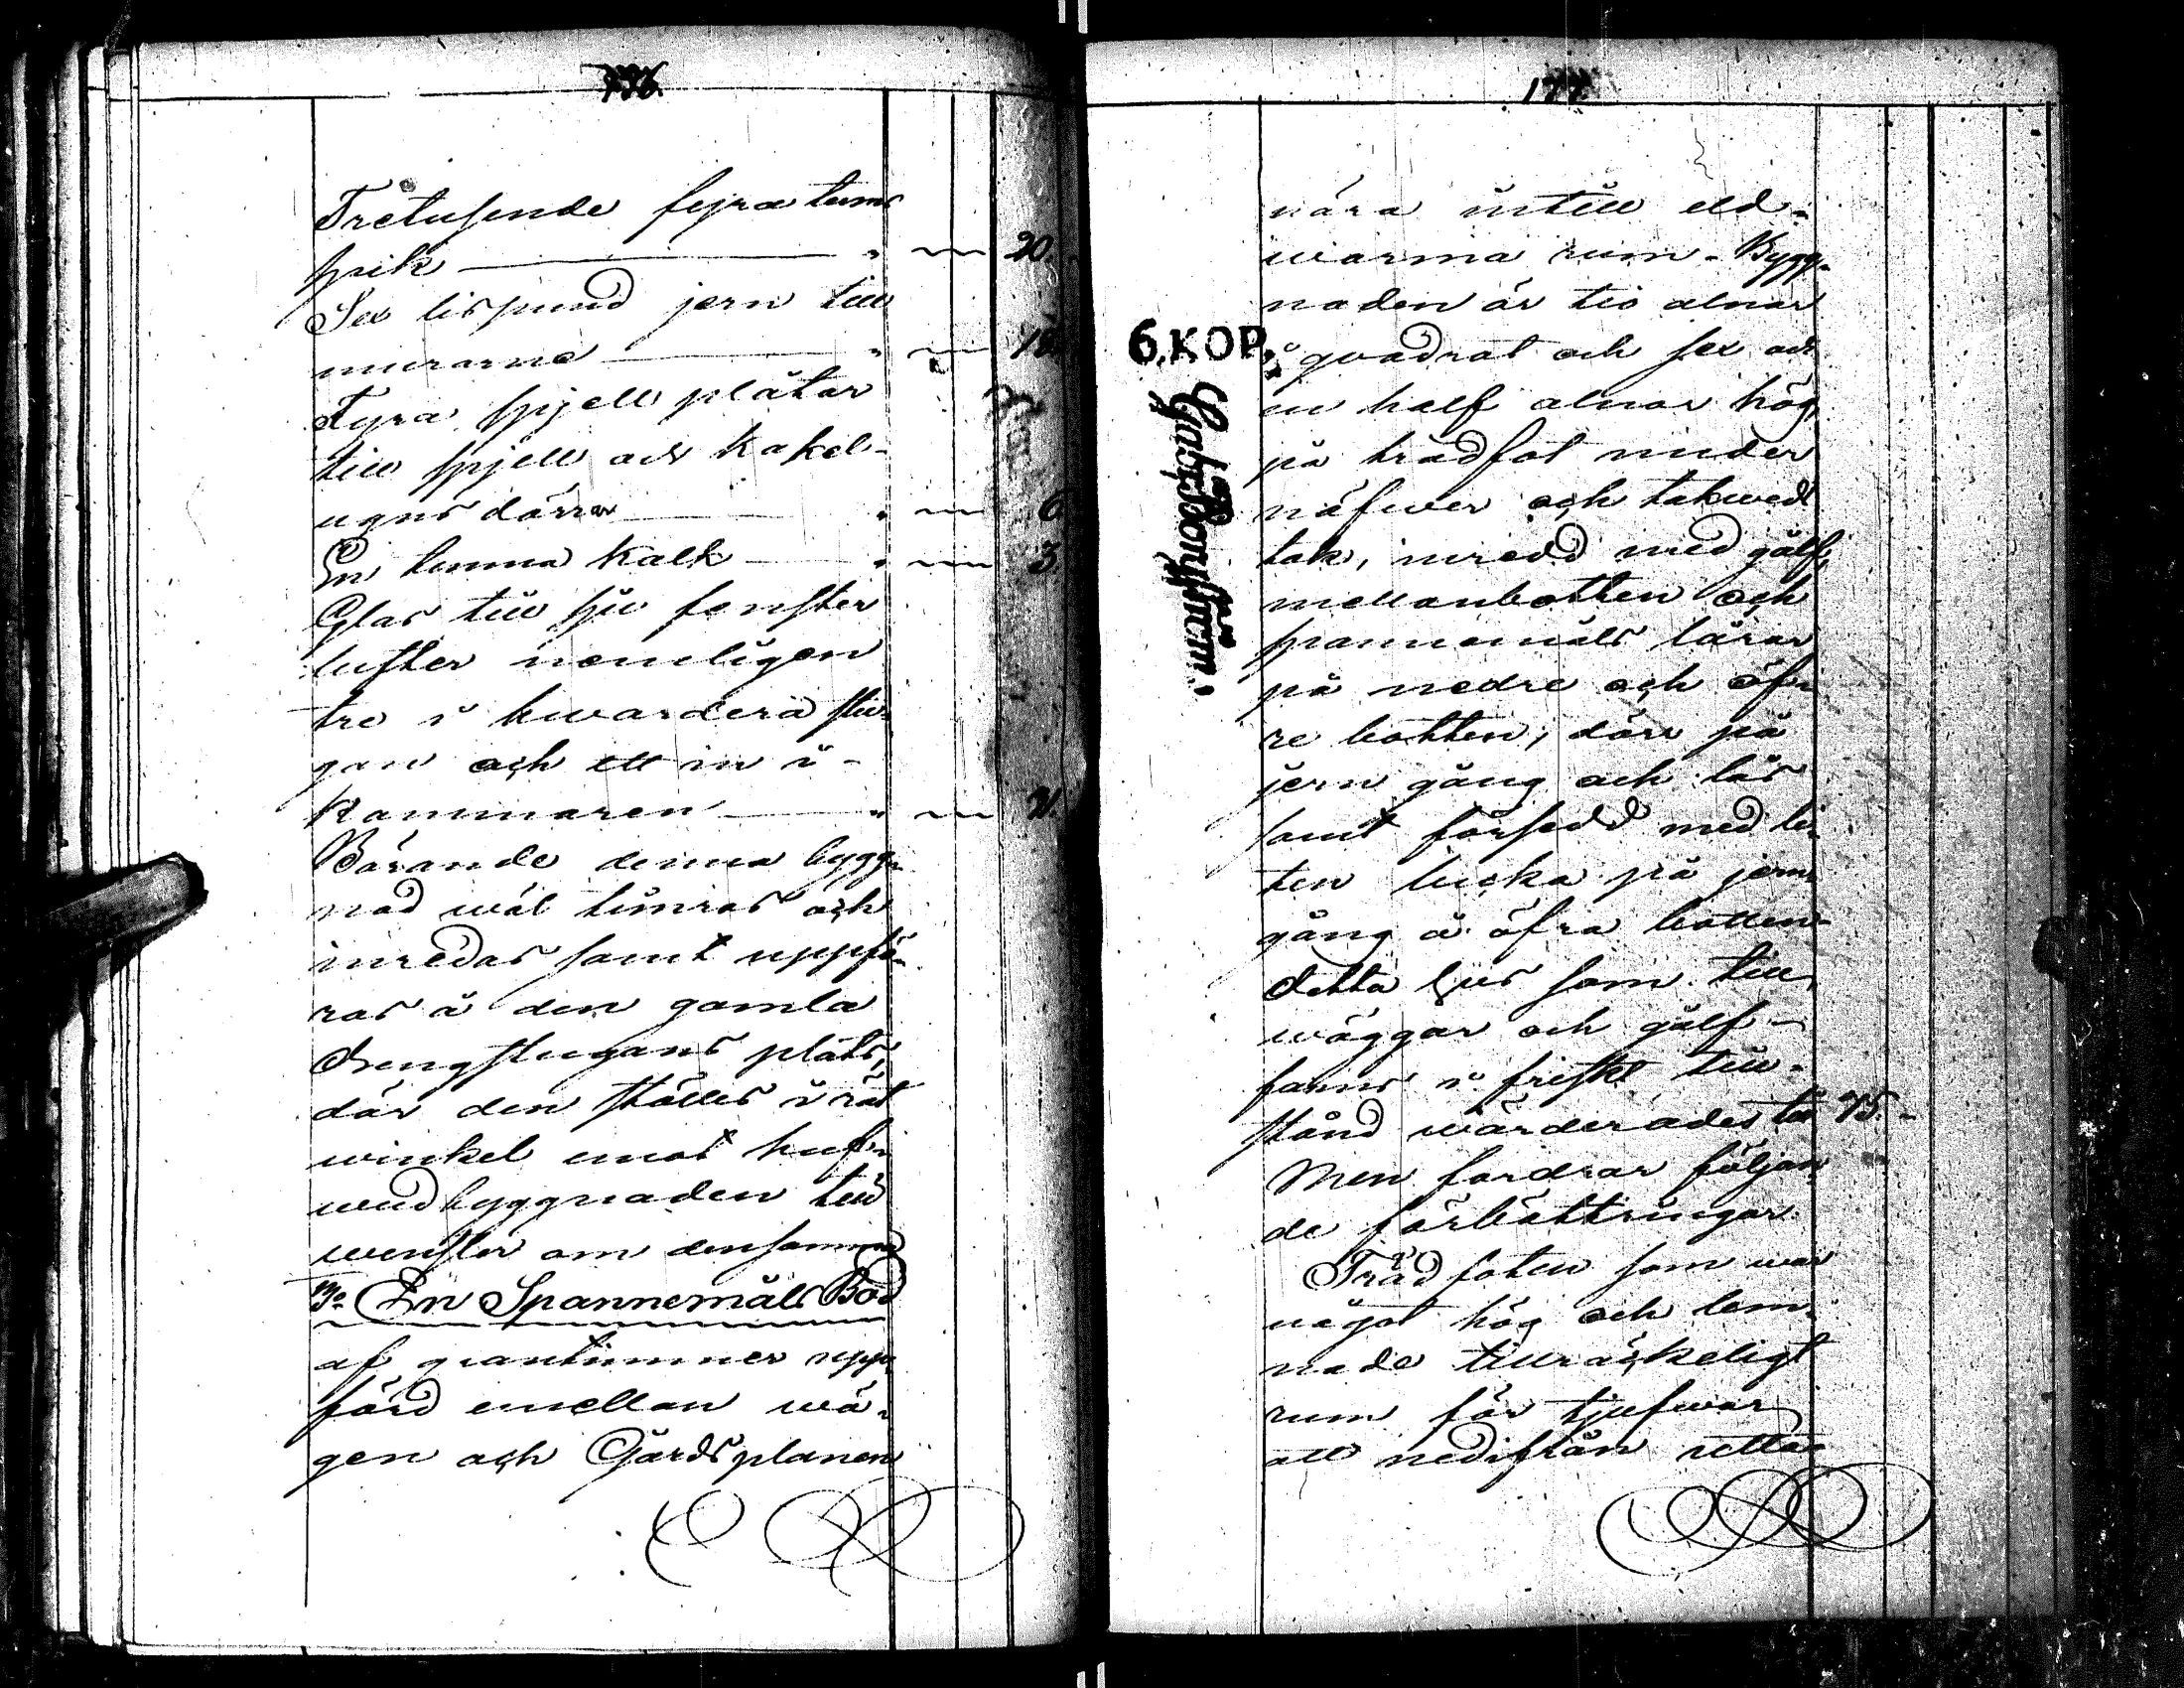 176.
Tretusende fyra tums
spik — " — 20.
Sex lispund jern till
murarne — " — 18.
Fyra spjell plåtar
till spjell och kakel-
ugns dörrar — " — 6
En tunna kalk — " — 3
Glas till sju fenster
lufter nemligen
tre i hwardera stu-
gan och ett in i
kammaren — " — 21.
Börande denna bygg-
nad wäl timras och
inredas samt uppfö-
ras å den gamla
drengstugans plats,
där den ställes i rät
winkel emot huf-
wudbyggnaden till
wenster om densamma
3o En Spannemåls Bod
af grantimmer upp-
förd emellan wä-
gen och Gårdsplanen
177.
nära intill eld-
warma rum. Bygg-
naden är tio alnar
i qvadrat och sex och
en half alnar hög
på trädfot under
näfwer och takwed
tak, inredd med gålf,
mellanbotten och
spannemåls lårar
på nedre och öf-
re botten, dörr på
jern gång och lås
samt försedd med li-
ten lucka på jern
gång å öfra botten
detta hus som till
wäggar och gålf
fanns i friskt till-
stånd wärderades till 75.-
Men fordrar följan-
de förbättringar.
Trädfoten som war
något hög och lem-
nade tillräckeligt
rum för tjufwar
att nedifrån
6. KOP.